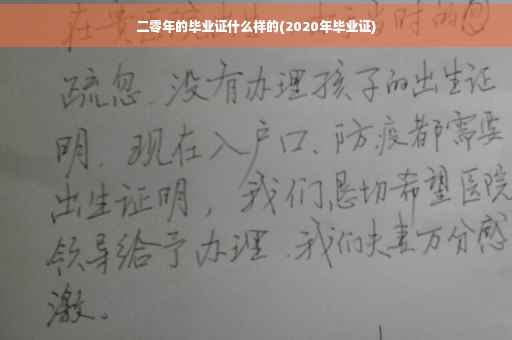 二零年的毕业证什么样的(2020年毕业证)
疏忽、没有办理孩子的出生证
明、现在入户口、防疫都需要
出生证明，我们恳切希望医院
领导给予办理、我们夫妻万分感
激。